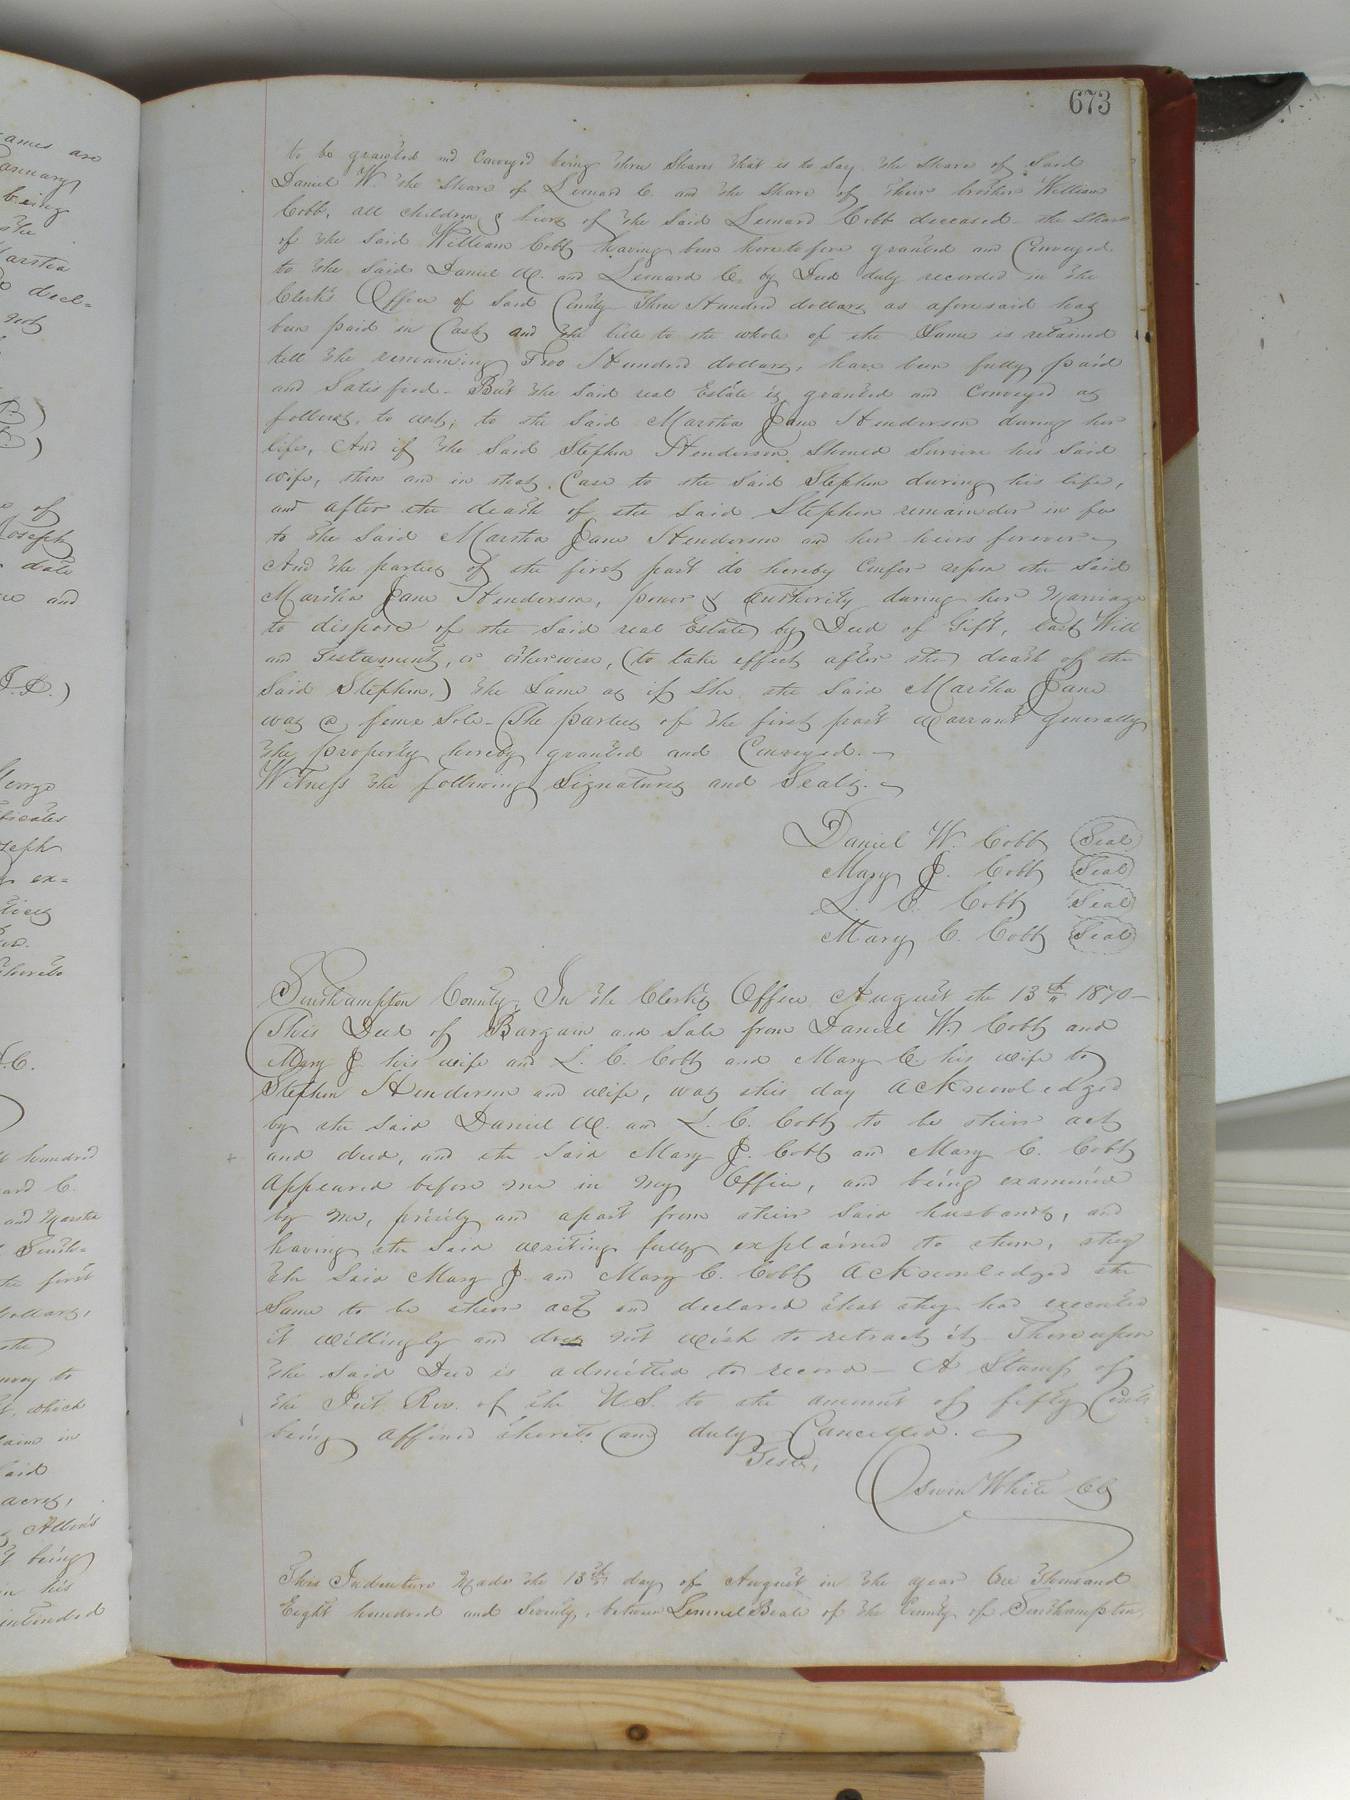 673
ames are
anuary
being
the
Martha
decl=
not
of
Joseph
date
and
George
ficates
seph
ex=
hundred
ard C.
and Martha
South=
the first
dollars,
vey to
which
laim in
said
acres,
Allen's
t being
in his
intended
to be granted and Conveyed being three Shares that is to Say, the Share of Said
Daniel W. the Share of Lemard C. and the Share of their brother William
Cobb, all children & heirs of the Said Lemard Cobb deceased - the Share
of the Said William Cobb having been heretofore granted and Conveyed
to the Said Daniel W. and Lemard C. by Deed duly recorded in the
Clerk's Office of Said County - Three Hundred dollars as aforesaid has
been paid in Cash and the title to the whole of the Same is retained
till the remaining Two Hundred dollars, have been fully paid
and Satisfied - But the Said real Estate is granted and Conveyed as
follows, to wit, to the Said Martha Jane Henderson during her
life, And if the Said Stephen Henderson Should Survive his Said
wife, then and in that Case to the Said Stephen during his life,
and after the death of the Said Stephen remainder in fee
to the Said Martha Jane Henderson and her heirs forever -
And the parties of the first part do hereby Confer upon the Said
Martha Jane Henderson, power & authority during her Marriage
to dispose of the Said real Estate by Deed of Gift, last Will
and Testament, or otherwise, (to take effect after the death of the
Said Stephen,) the Same as if She the Said Martha Jane
was a feme Sole - The parties of the first part Warrant Generally
the property hereby granted and Conveyed. -
Witness the following Signatures and Seals. -
Daniel W. Cobb Seal
Mary J. Cobb Seal
L. C. Cobb Seal
Mary C. Cobb Seal
Southampton County, In the Clerk's Office August the 13th 1870 -
This Deed of Bargain and Sale from Daniel W. Cobb and
Mary J. his wife and L. C. Cobb and Mary C. his wife to
Stephen Henderson and wife, was this day acknowledged
by the Said Daniel W. and L. C. Cobb to be their act
and deed, and the Said Mary J. Cobb and Mary C. Cobb
appeared before me in my Office, and being examined
by me, privily and apart from their Said husbands, and
having the Said Writing fully explained to them, they
the Said Mary J. and Mary C. Cobb acknowledged the
Same to be their act and declared that they had executed
it willingly and does not wish to retract it - Thereupon
the Said Deed is admitted to record - A Stamp of
the Int. Rev. of the U.S. to the amount of fifty Cents
being affixed thereto and duly Cancelled. -
Teste,
Edwin White Clk
This Indenture Made the 13th day of August in the year One Thousand
Eight hundred and Seventy, between Lemuel Beale of the County of Southampton